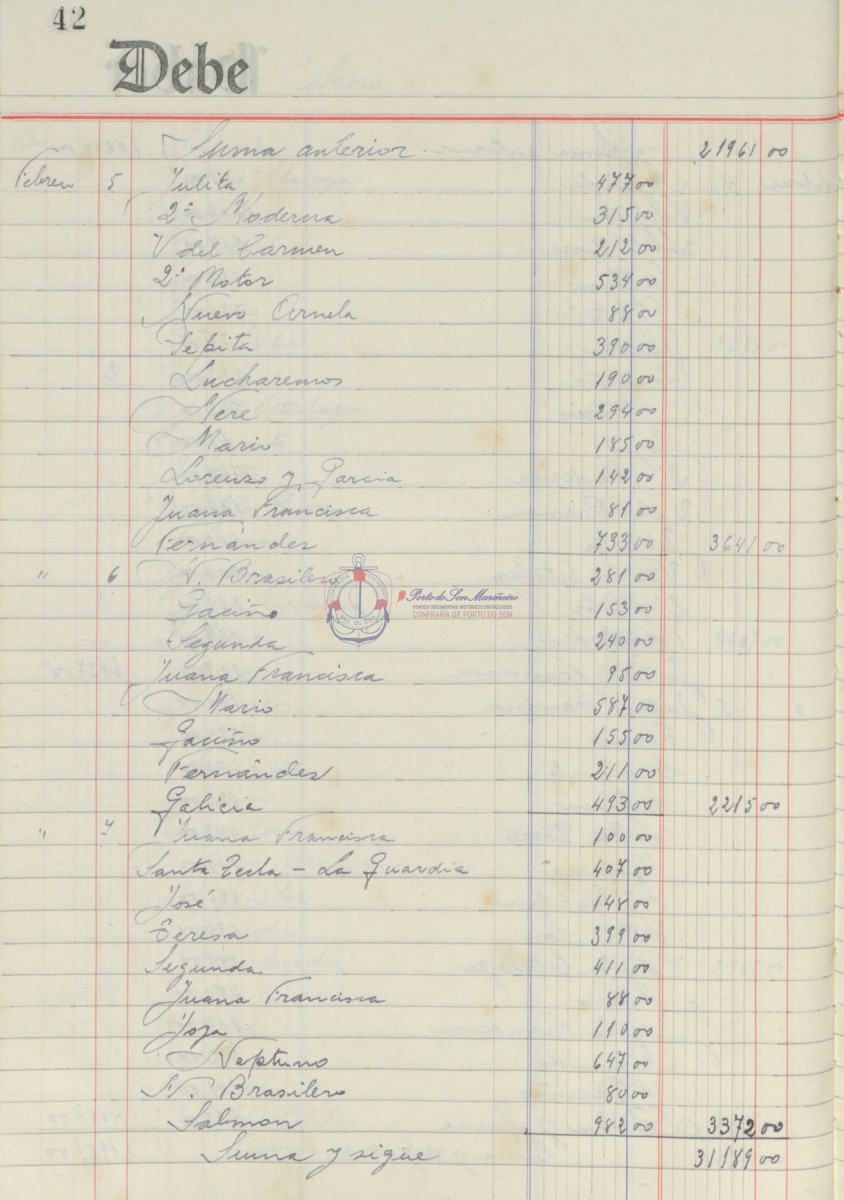 42
Debe
Suma anterior 21961 00
Febrero 5 Julita 477 00
2ª Moderna 315 00
V del Carmen 212 00
2º Motor 534 00
Nuevo Arnela 88 00
Pepita 390 00
Lucharemos 190 00
Nere 294 00
Mario 185 00
Lorenzo y Garcia 142 00
Juana Francisca 81 00
Fernández 733 00 3641 00
" 6 N. Brasilero 281 00
Gaciño 153 00
Segunda 240 00
Juana Francisca 95 00
Mario 587 00
Gaciño 155 00
Fernández 211 00
Galicia 493 00 2215 00
" 7 Juana Francisca 100 00
Santa Tecla - La Guardia 407 00
José 148 00
Teresa 399 00
Segunda 411 00
Juana Francisca 88 00
110 00
Neptuno 647 00
N. Brasilero 80 00
Salmon 982 00 3372 00
Suma y sigue 31189 00
#Porto do Son Mariñeiro
FONDOS DOCUMENTAIS HISTÓRICOS DIXITALIZADOS
CONFRARÍA DE PORTO DO SON